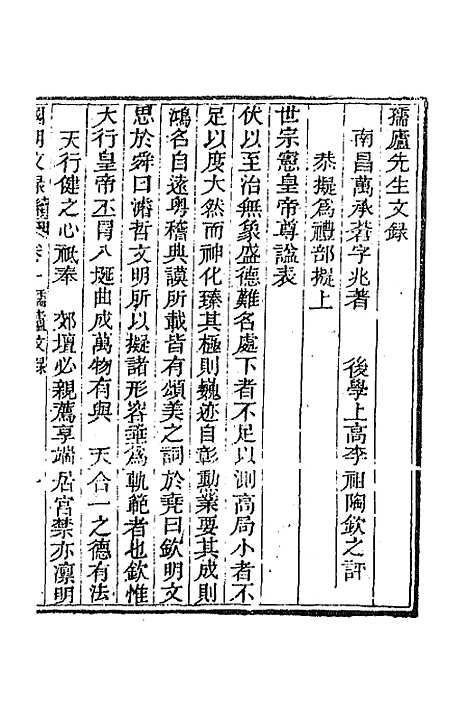 孺廬先生文録
南昌萬承蒼字兆著　後學上高李祖陶欽之評
恭擬爲禮部擬上
世宗憲皇帝尊謚表
伏以至治無象盛德難名處下者不足以測高局小者不
足以度大然而神化臻其極則巍迹自彰勳業要其成則
鴻名自遠粤稽典謨所載皆有頌美之詞於堯曰欽明文
思於舜曰濬哲文明所以擬諸形容垂爲軌範者也欽惟
大行皇帝丕冐八埏曲成萬物有與　天合一之德有法
天行健之心祇奉　郊壇必親薦享端居宮禁亦凜明
國朝文録　卷一孺廬文録　一